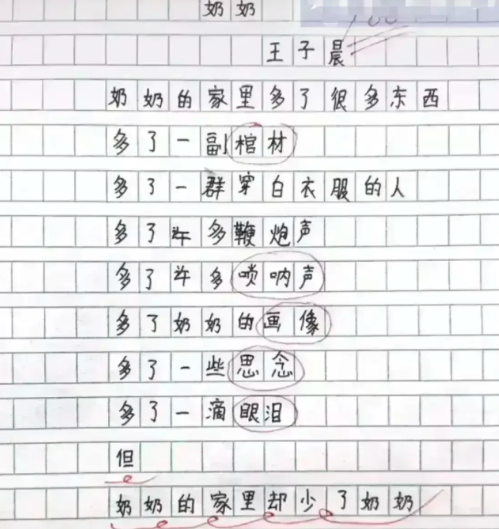 奶奶
100
王子晨
奶奶的家里多了很多东西
多了一副棺材
多了一群穿白衣服的人
多了许多鞭炮声
多了许多唢呐声
多了奶奶的画像
多了一些思念
多了一滴眼泪
但
奶奶的家里却少了奶奶